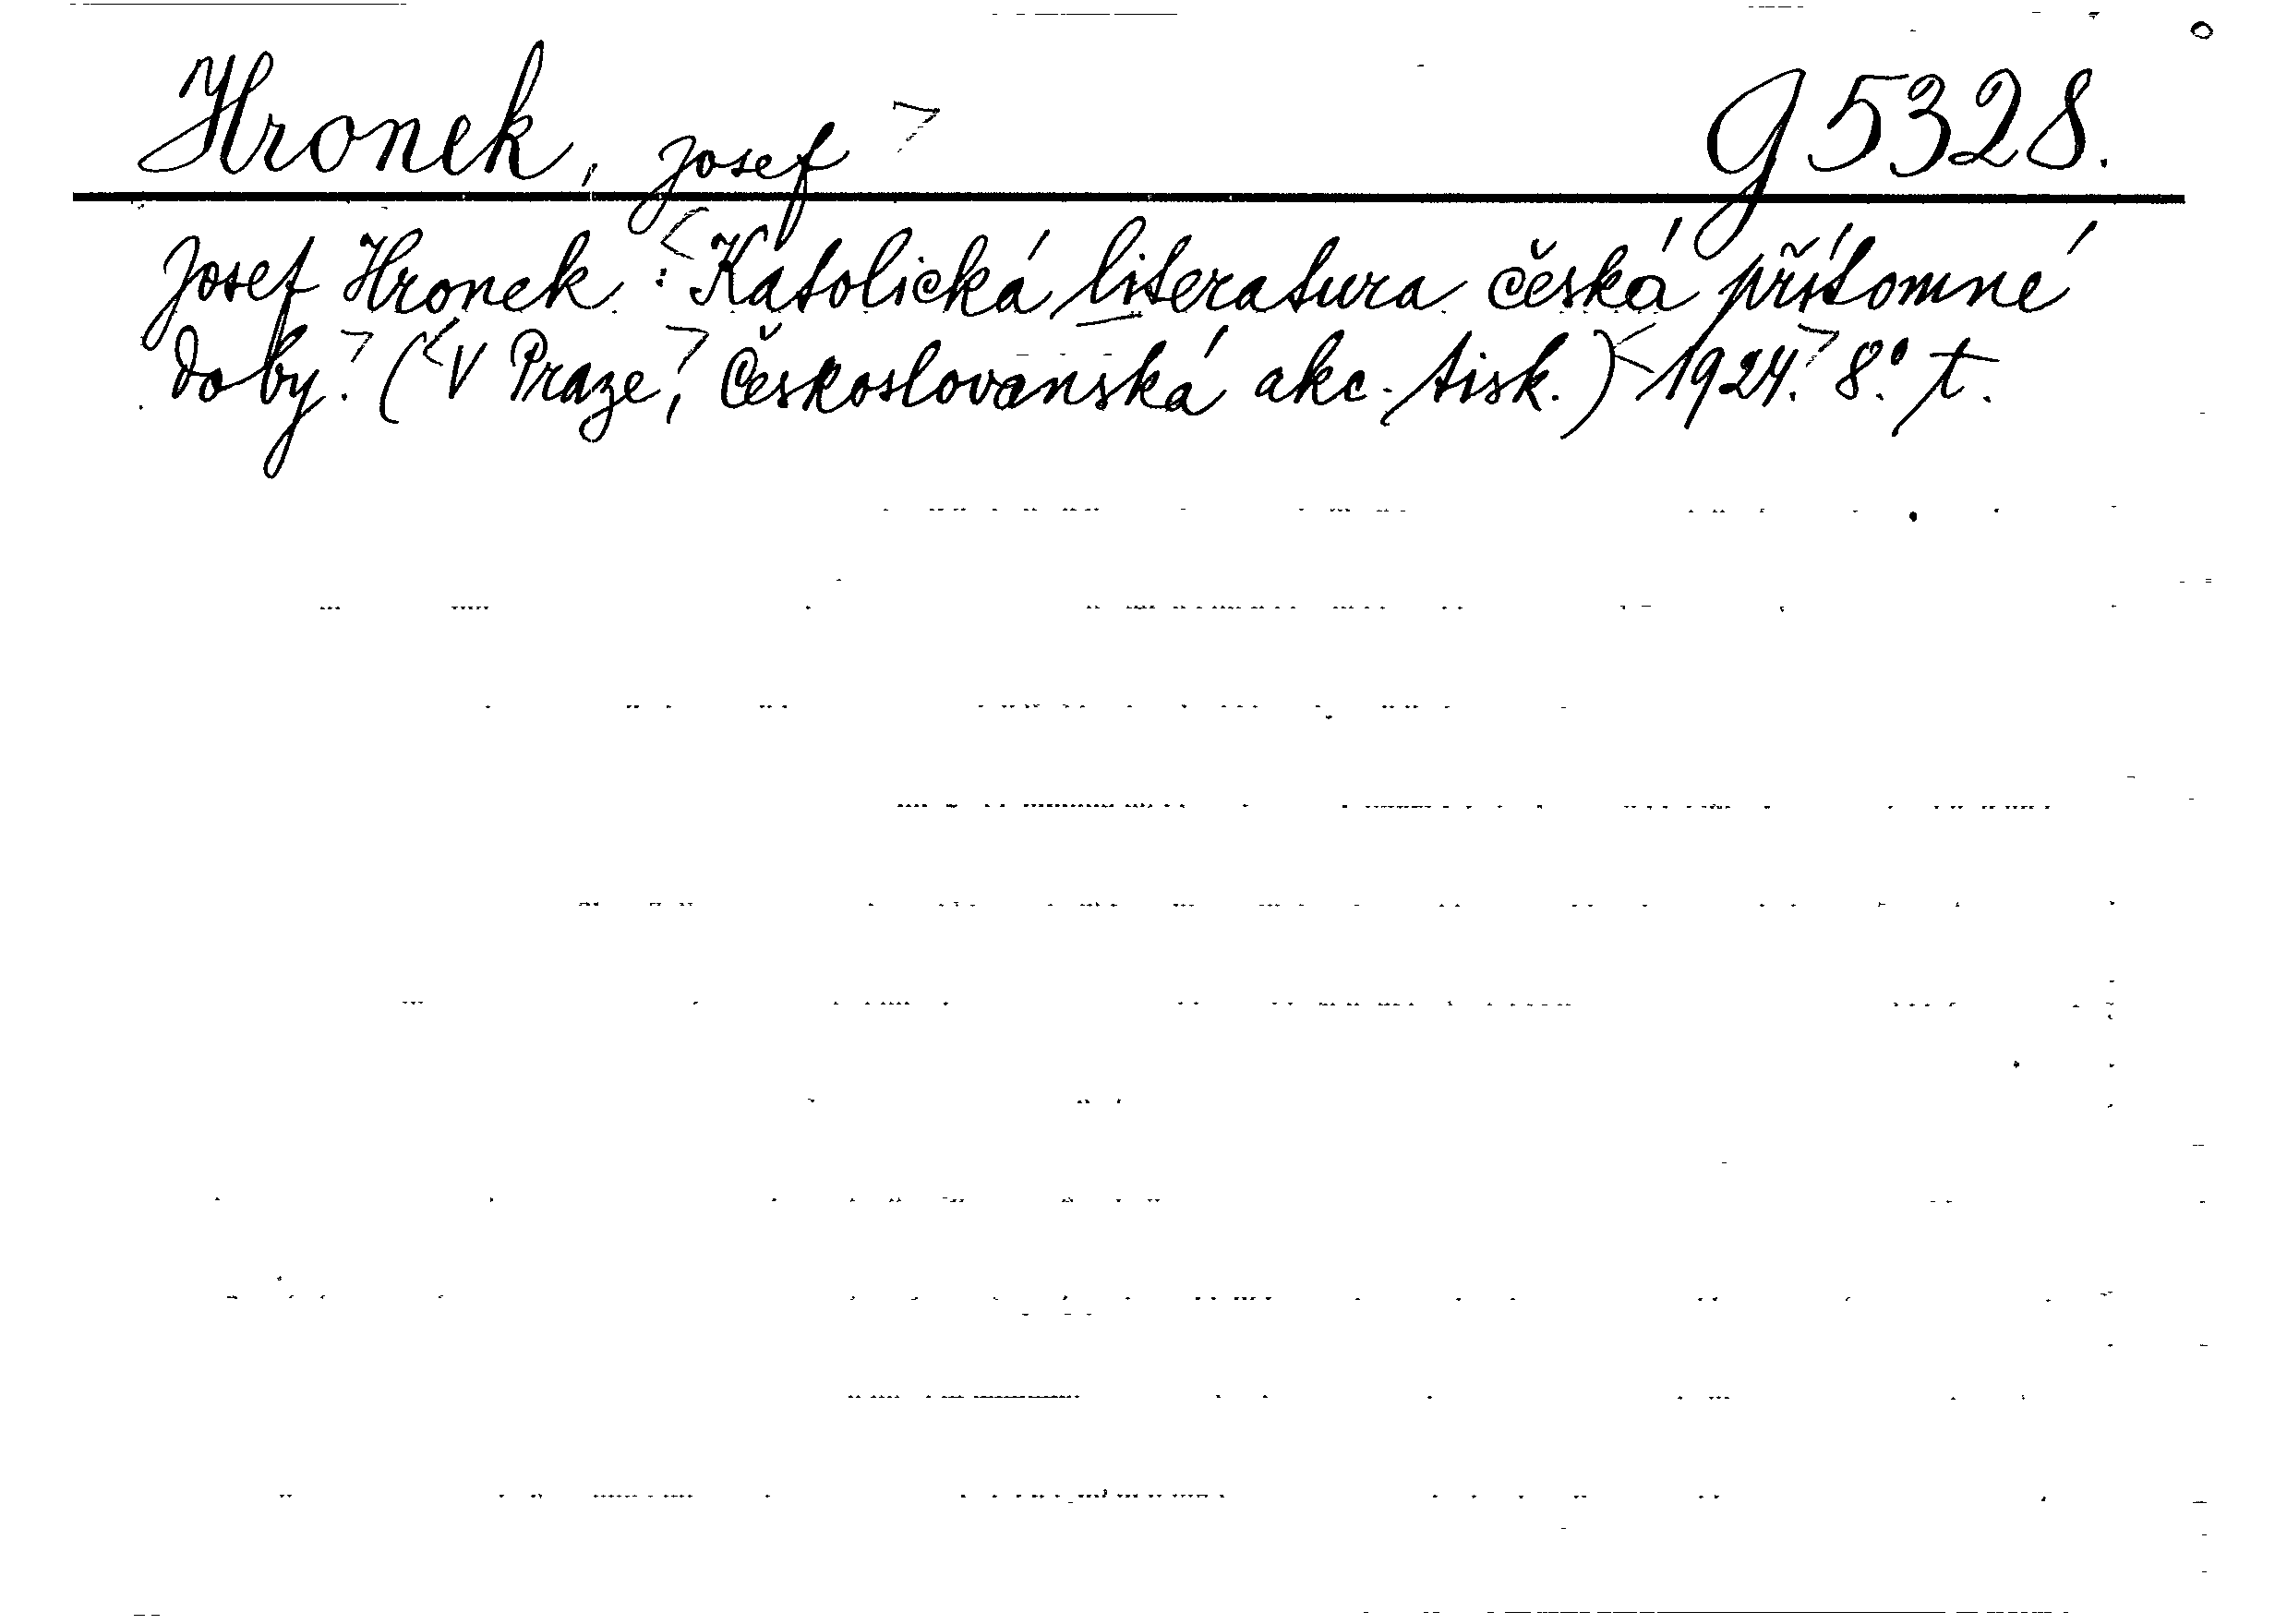 Hronek, Josef G 5328.
Josef Hronek: Katolická literatura česká přítomné
doby. (V Praze, Československá akc. tisk.) 1924. 8°. t.